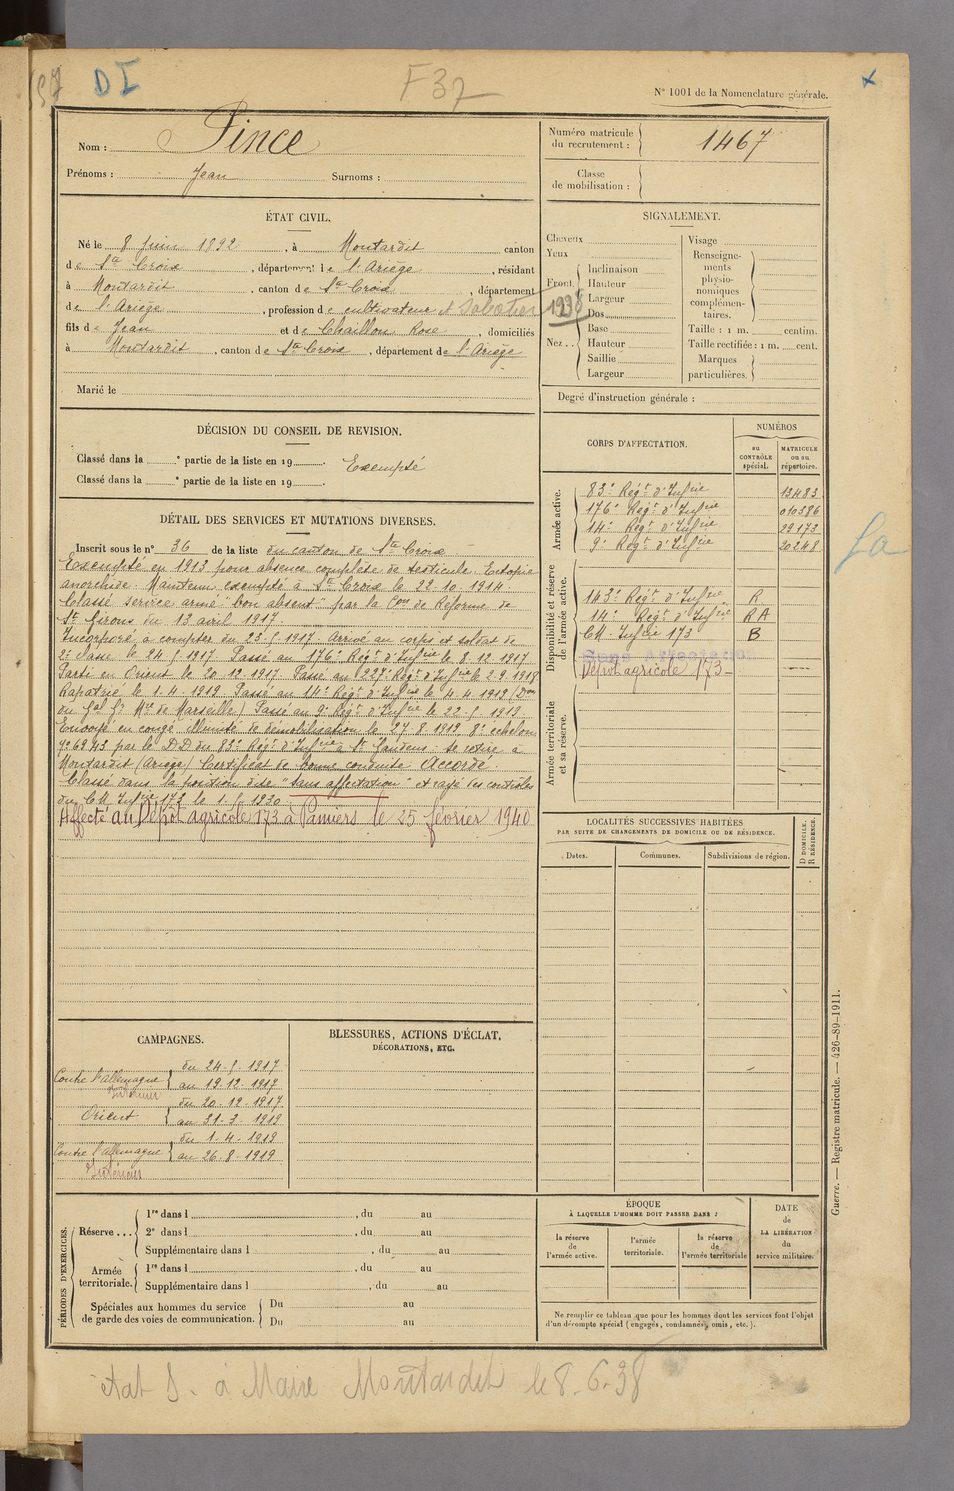 DI
F 37
N° 1001 de la Nomenclature générale.
Nom : Pince
Prénoms : Jean Surnoms :
Numéro matricule du recrutement : 1467
Classe de mobilisation :
ÉTAT CIVIL.
Né le 8 Juin 1892, à Montardit canton
de Ste Croix, département de l'Ariège, résidant
à Montardit, canton de Ste Croix, département
de l'Ariège, profession de cultivateur et Sabotier 1938
fils de Jean et de Chaillon Rose, domiciliés
à Montardit, canton de Ste Croix, département de l'Ariège
Marié le
SIGNALEMENT.
Cheveux
Yeux
Front. Inclinaison
Hauteur
Largeur
Nez .. Dos
Base
Hauteur
Saillie
Largeur
Visage
Renseignements physionomiques complémentaires.
Taille : 1 m. centim.
Taille rectifiée : 1 m. cent.
Marques particulières.
Degré d'instruction générale :
DÉCISION DU CONSEIL DE REVISION.
Classé dans la e partie de la liste en 19 . Exempté
Classé dans la e partie de la liste en 19 .
CORPS D'AFFECTATION.
NUMÉROS
au CONTRÔLE spécial.
MATRICULE ou au répertoire.
Armée active.
83e Régt d'Infrie 13483
176e Régt d'Infrie 010386
14e Régt d'Infrie 29173
9e Régt d'Infrie 20248
Disponibilité et réserve de l'armée active.
143e Régt d'Infrie R
14e Régt d'Infrie RA
CM. Infrie 173 B
Sans Affectation
Dépôt agricole 173
Armée territoriale et sa réserve.
DÉTAIL DES SERVICES ET MUTATIONS DIVERSES.
Inscrit sous le n° 36 de la liste du canton de Ste Croix
Exempté en 1913 pour absence complète de testicule. Ectopie
anorchide. Maintenu exempté à Ste Croix le 22-10-1914.
Classé service armé "bon absent" par la Con de Réforme de
St Girons du 13 avril 1917.
Incorporé à compter du 23-5-1917 Arrivé au corps et soldat de
2e classe le 24-5-1917 Passé au 176e Régt d'Infrie le 8-12-1917
Parti en Orient le 20-12-1917 Passé au 227e Régt d'Infrie le 2-9-1918
Rapatrié le 1-4-1919 Passé au 14e Régt d'Infrie le 4-4-1919
Passé au 9e Régt d'Infrie le 22-5-1919
Envoyé en congé illimité de démobilisation le 27-8-1919 8e échelon
par le D.D du 83e Régt d'Infrie à St Gaudens. Se retire à
Montardit (Ariège) Certificat de bonne conduite Accordé
Classé dans la position dite "sans affectation" et rayé des contrôles
du CM Infrie 173 le 1-5-1930
Affecté au Dépôt agricole 173 à Pamiers le 25 février 1940
LOCALITÉS SUCCESSIVES HABITÉES
PAR SUITE DE CHANGEMENTS DE DOMICILE OU DE RÉSIDENCE.
Dates. Communes. Subdivisions de région. D DOMICILE. R RÉSIDENCE.
CAMPAGNES.
Contre l'allemagne du 24-5-1917
Intérieur au 19-12-1917
Orient du 20-12-1917
au 31-3-1919
Contre l'allemagne du 1-4-1919
Intérieur au 26-8-1919
BLESSURES, ACTIONS D'ÉCLAT,
DÉCORATIONS, ETC.
PÉRIODES D'EXERCICES.
Réserve ... 1re dans l , du au
2e dans l , du au
Supplémentaire dans l , du au
Armée territoriale. 1re dans l , du au
Supplémentaire dans l , du au
Spéciales aux hommes du service de garde des voies de communication. Du au
Du au
ÉPOQUE
À LAQUELLE L'HOMME DOIT PASSER DANS :
la réserve de l'armée active.
l'armée territoriale.
la réserve de l'armée territoriale
DATE de LA LIBÉRATION du service militaire.
Ne remplir ce tableau que pour les hommes dont les services font l'objet
d'un décompte spécial (engagés, condamnés, omis, etc.).
Guerre. — Registre matricule. — 426-89-1911.
état S. à Maire Montardit le 8-6-38